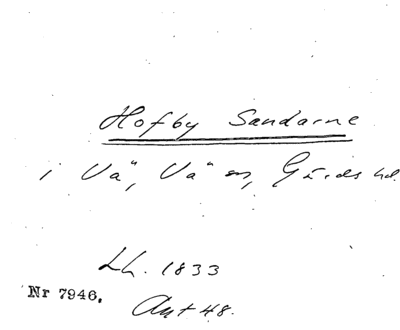 Hofby Sandarne
i Vä, Vä sn, Gärds hd.
Lh. 1833
Nr 7946.
Avt 48.